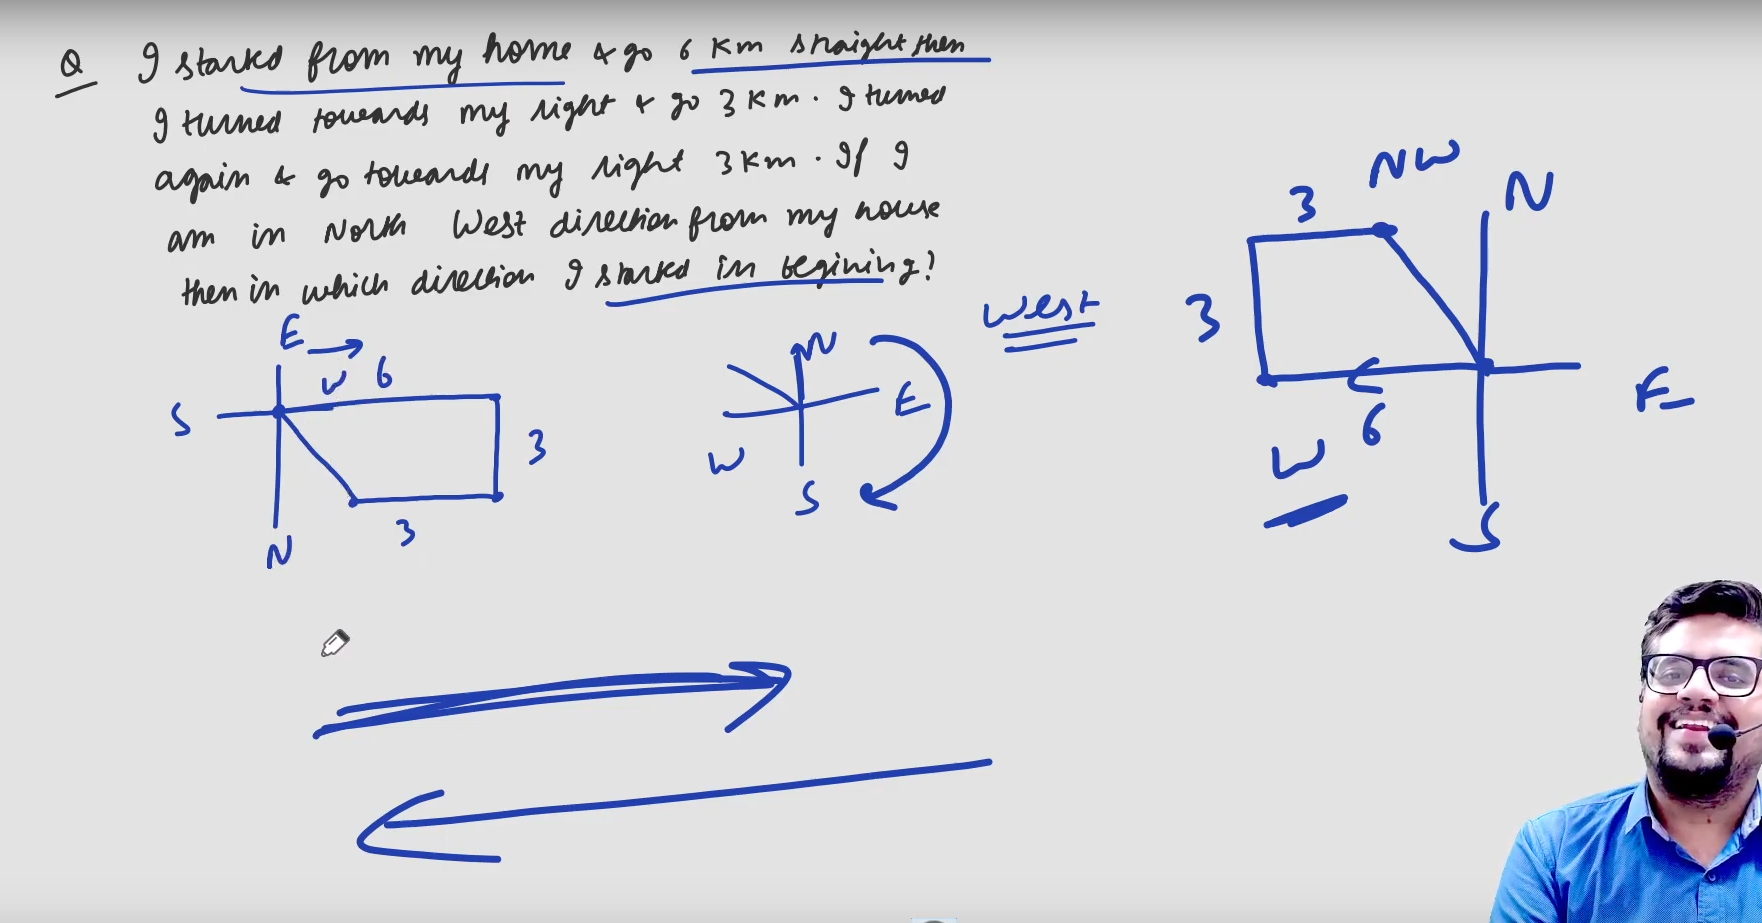 Q I started from my home & go 6 Km straight then
I turned towards my right & go 3 Km. I turned
again & go towards my right 3 Km. If I
am in North West direction from my house
then in which direction I started in begining?
West
E
W 6
S
3
3
N
N
E
W
S
NW
N
3
3
E
6
W
S